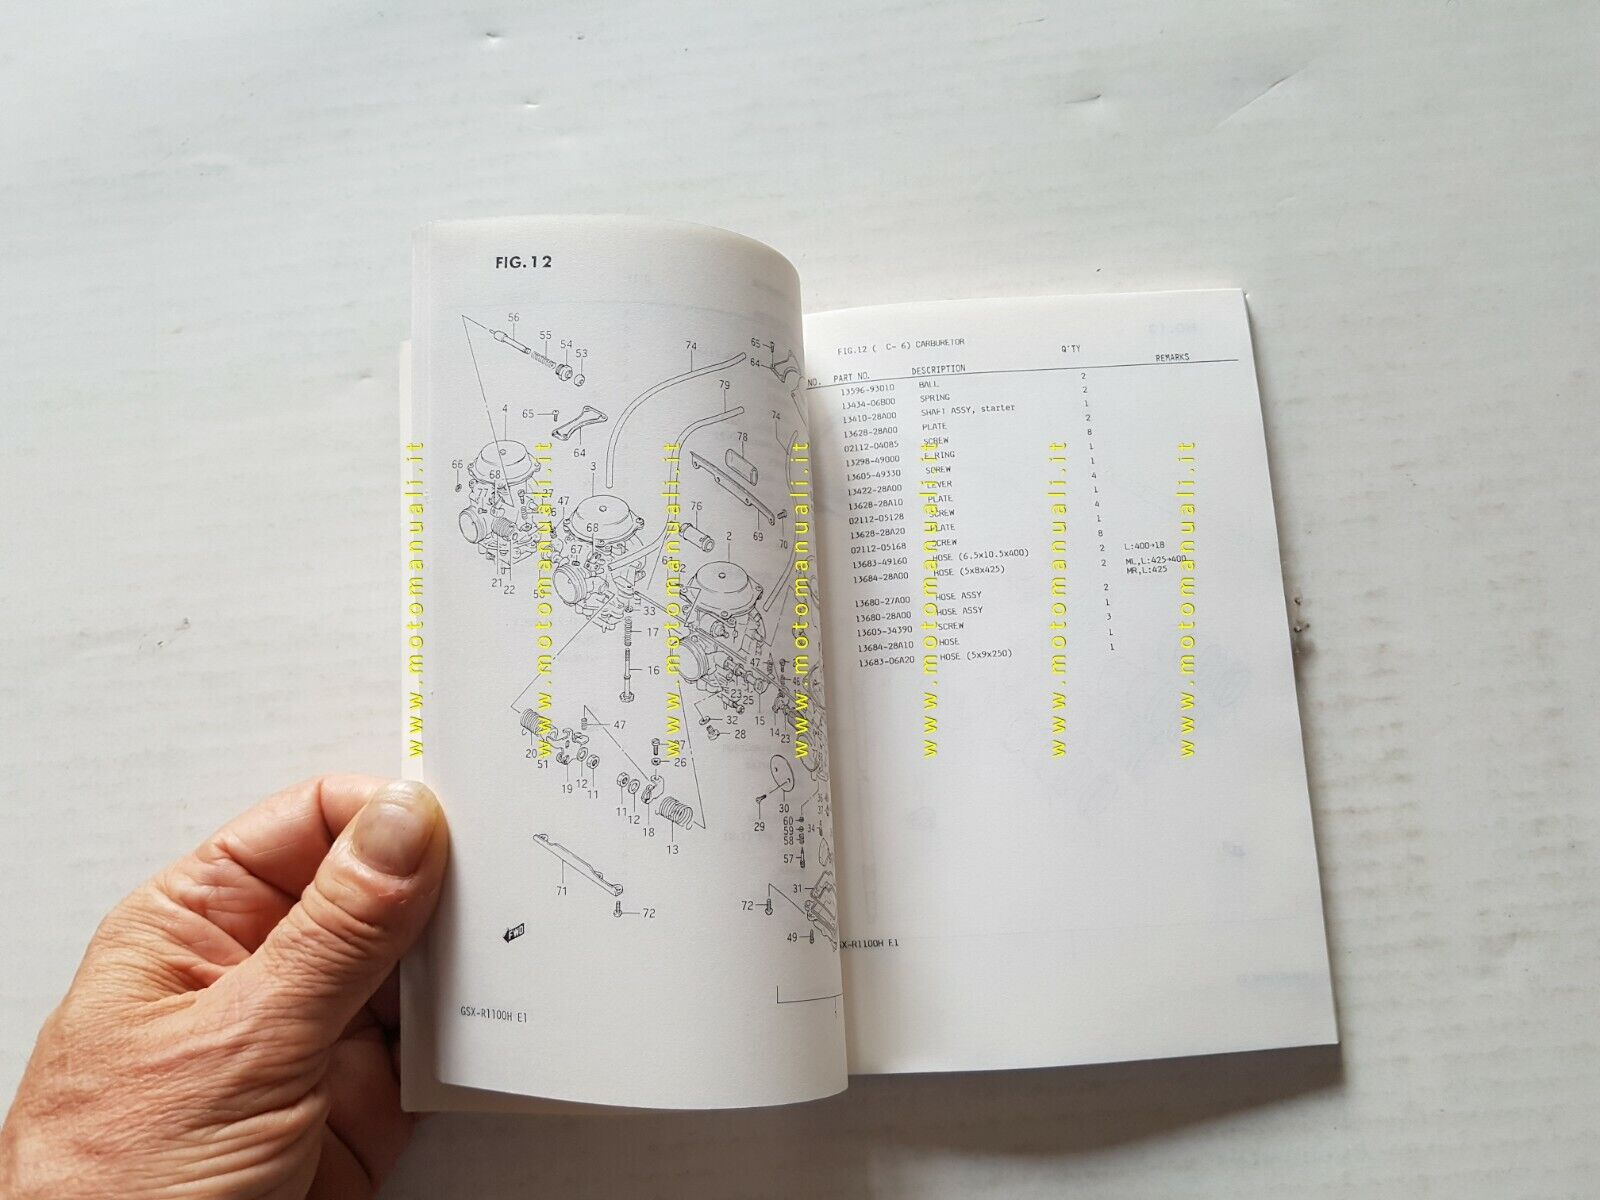 FIG.12
56
55
54
53
74
65
64
4
65
79
74
64
3
78
66
68
77
27
47
68
76
69
70
2
67
21
22
33
17
16
47
46
23
25
15
14
23
32
28
47
20
51
19
12
11
26
11
12
18
13
30
29
36
37
60
59
58
34
57
31
71
72
72
49
FWD
GSX-R1100H E1
FIG.12 ( C- 6) CARBURETOR
NO. PART NO. DESCRIPTION Q'TY REMARKS
13596-93D10 BALL 2
13434-06B00 SPRING 2
13410-28A00 SHAFT ASSY, starter 1
13628-28A00 PLATE 2
02112-04085 SCREW 8
13298-49000 RING 1
13605-49330 SCREW 1
13422-28A00 LEVER 4
13628-28A10 PLATE 1
02112-05128 SCREW 4
13628-28A20 PLATE 1
02112-05168 SCREW 8
13683-49160 HOSE (6.5x10.5x400) 2 L:400→18
13684-28A00 HOSE (5x8x425) 2 ML,L:425→400
MR,L:425
13680-27A00 HOSE ASSY 2
13680-28A00 HOSE ASSY 1
13605-34390 SCREW 3
13684-28A10 HOSE 1
13683-06A20 HOSE (5x9x250) 1
SX-R1100H E1
www.motomanuali.it
www.motomanuali.it
www.motomanuali.it
www.motomanuali.it
www.motomanuali.it
www.motomanuali.it
www.motomanuali.it